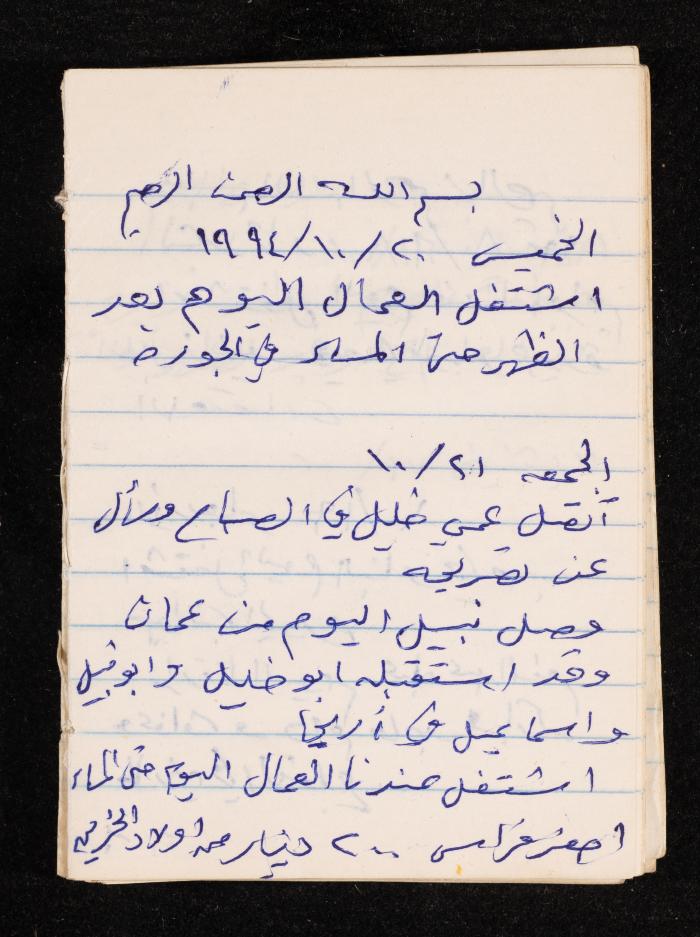 بسم الله الرحمن الرحيم
الخميس ٢٠/١٠/١٩٩٤
اشتغل العمال اليوم بعد
الظهر حتى المساء في الجورة
الجمعه ٢١/١٠
أتصل عمي خليل في الصباح وسأل
عن تصريحه
وصل نبيل اليوم من عمان
وقد استقبله ابو خليل وابو نبيل
واسماعيل في أريحا
اشتغل عندنا العمال اليوم حتى المساء
٢٠٠ دينار من اولاد